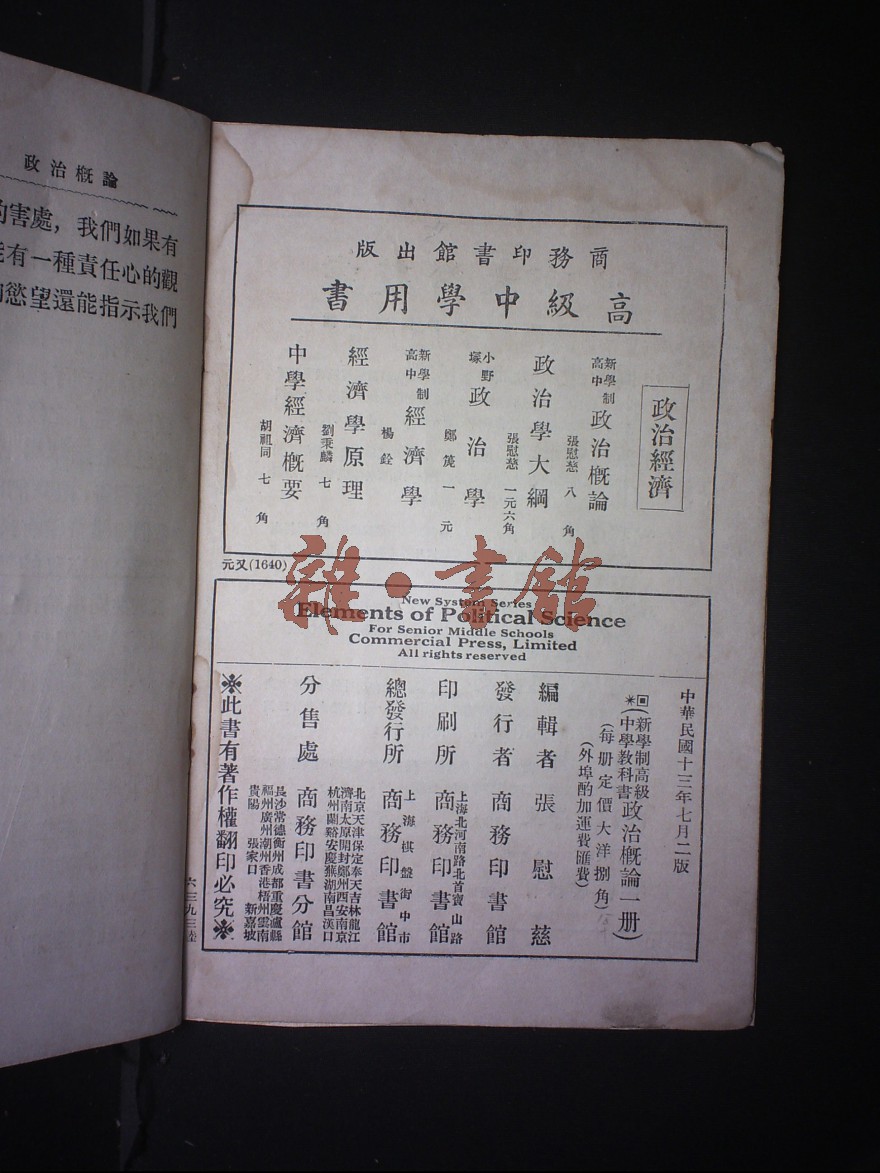 政治概論
害處，我們如果有
有一種責任心的觀
慾望還能指示我們
商務印書館出版
高級中學用書
政治經濟
新學制高中 政治概論 張慰慈 八角
政治學大綱 張慰慈 一元六角
小野塚 政治學 鄭篪 一元
新學制高中 經濟學 楊銓
經濟學原理 劉秉麟 七角
中學經濟概要 胡祖同 七角
元又(1640)
雜·書館
New System Series
Elements of Political Science
For Senior Middle Schools
Commercial Press, Limited
All rights reserved
中華民國十三年七月二版
(新學制高級中學教科書 政治概論一册)
(每册定價大洋捌角)
(外埠酌加運費匯費)
編輯者 張慰慈
發行者 商務印書館
上海北河南路北首寶山路
印刷所 商務印書館
上海棋盤街中市
總發行所 商務印書館
分售處 商務印書分館
北京天津保定奉天吉林龍江
濟南太原開封鄭州西安南京
杭州蘭谿安慶蕪湖南昌漢口
長沙常德衡州成都重慶瀘縣
福州廣州潮州香港梧州雲南
貴陽 張家口 新嘉坡
※此書有著作權翻印必究※
六三九三陸